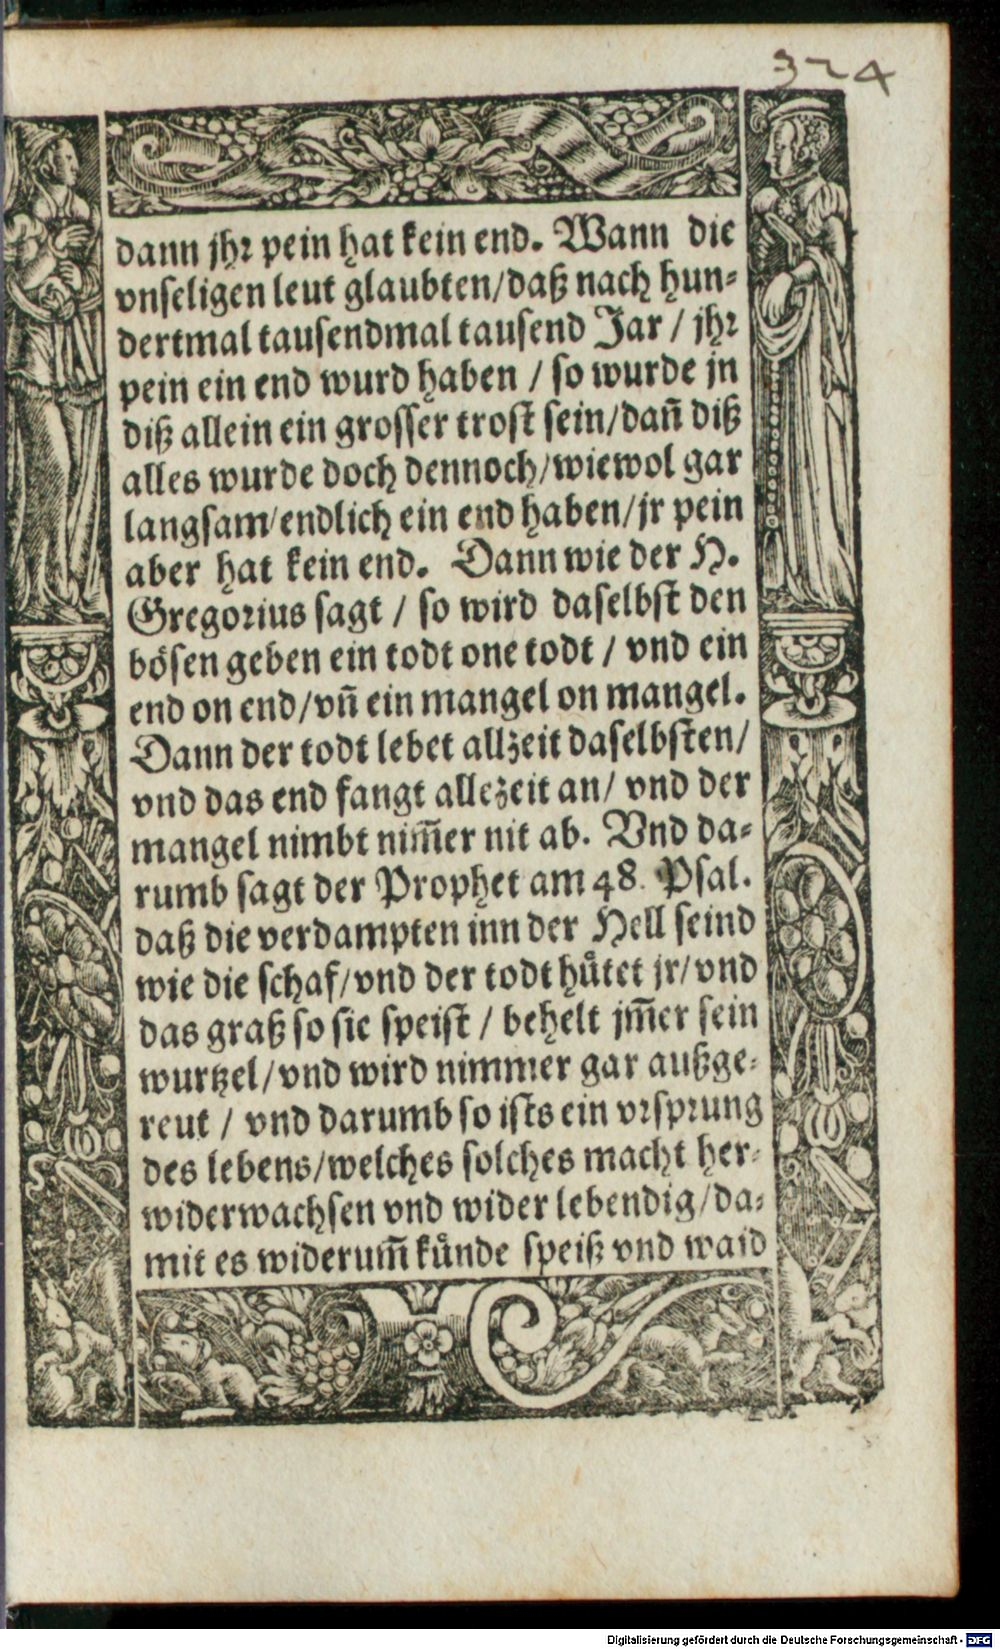 324
dann jhr pein hat kein end. Wann die
vnseligen leut glaubten/daß nach hun-
dertmal tausendmal tausend Jar / jhr
pein ein end wurd haben / so wurde jn
diß allein ein grosser trost sein/dañ diß
alles wurde doch dennoch/wiewol gar
langsam/endlich ein end haben/jr pein
aber hat kein end. Dann wie der H.
Gregorius sagt / so wird daselbst den
bösen geben ein todt one todt / vnd ein
end on end/vñ ein mangel on mangel.
Dann der todt lebet allzeit daselbsten/
vnd das end fangt allezeit an/ vnd der
mangel nimbt nim̃er nit ab. Vnd da-
rumb sagt der Prophet am 48. Psal.
daß die verdampten inn der Hell seind
wie die schaf/vnd der todt huͤtet jr/vnd
das graß so sie speist / behelt jm̃er sein
wurtzel/vnd wird nimmer gar außge-
reut / vnd darumb so ists ein vrsprung
des lebens/welches solches macht her-
widerwachsen vnd wider lebendig/da-
mit es widerum̃ kuͤnde speiß vnd waid
Digitalisierung gefördert durch die Deutsche Forschungsgemeinschaft - DFG